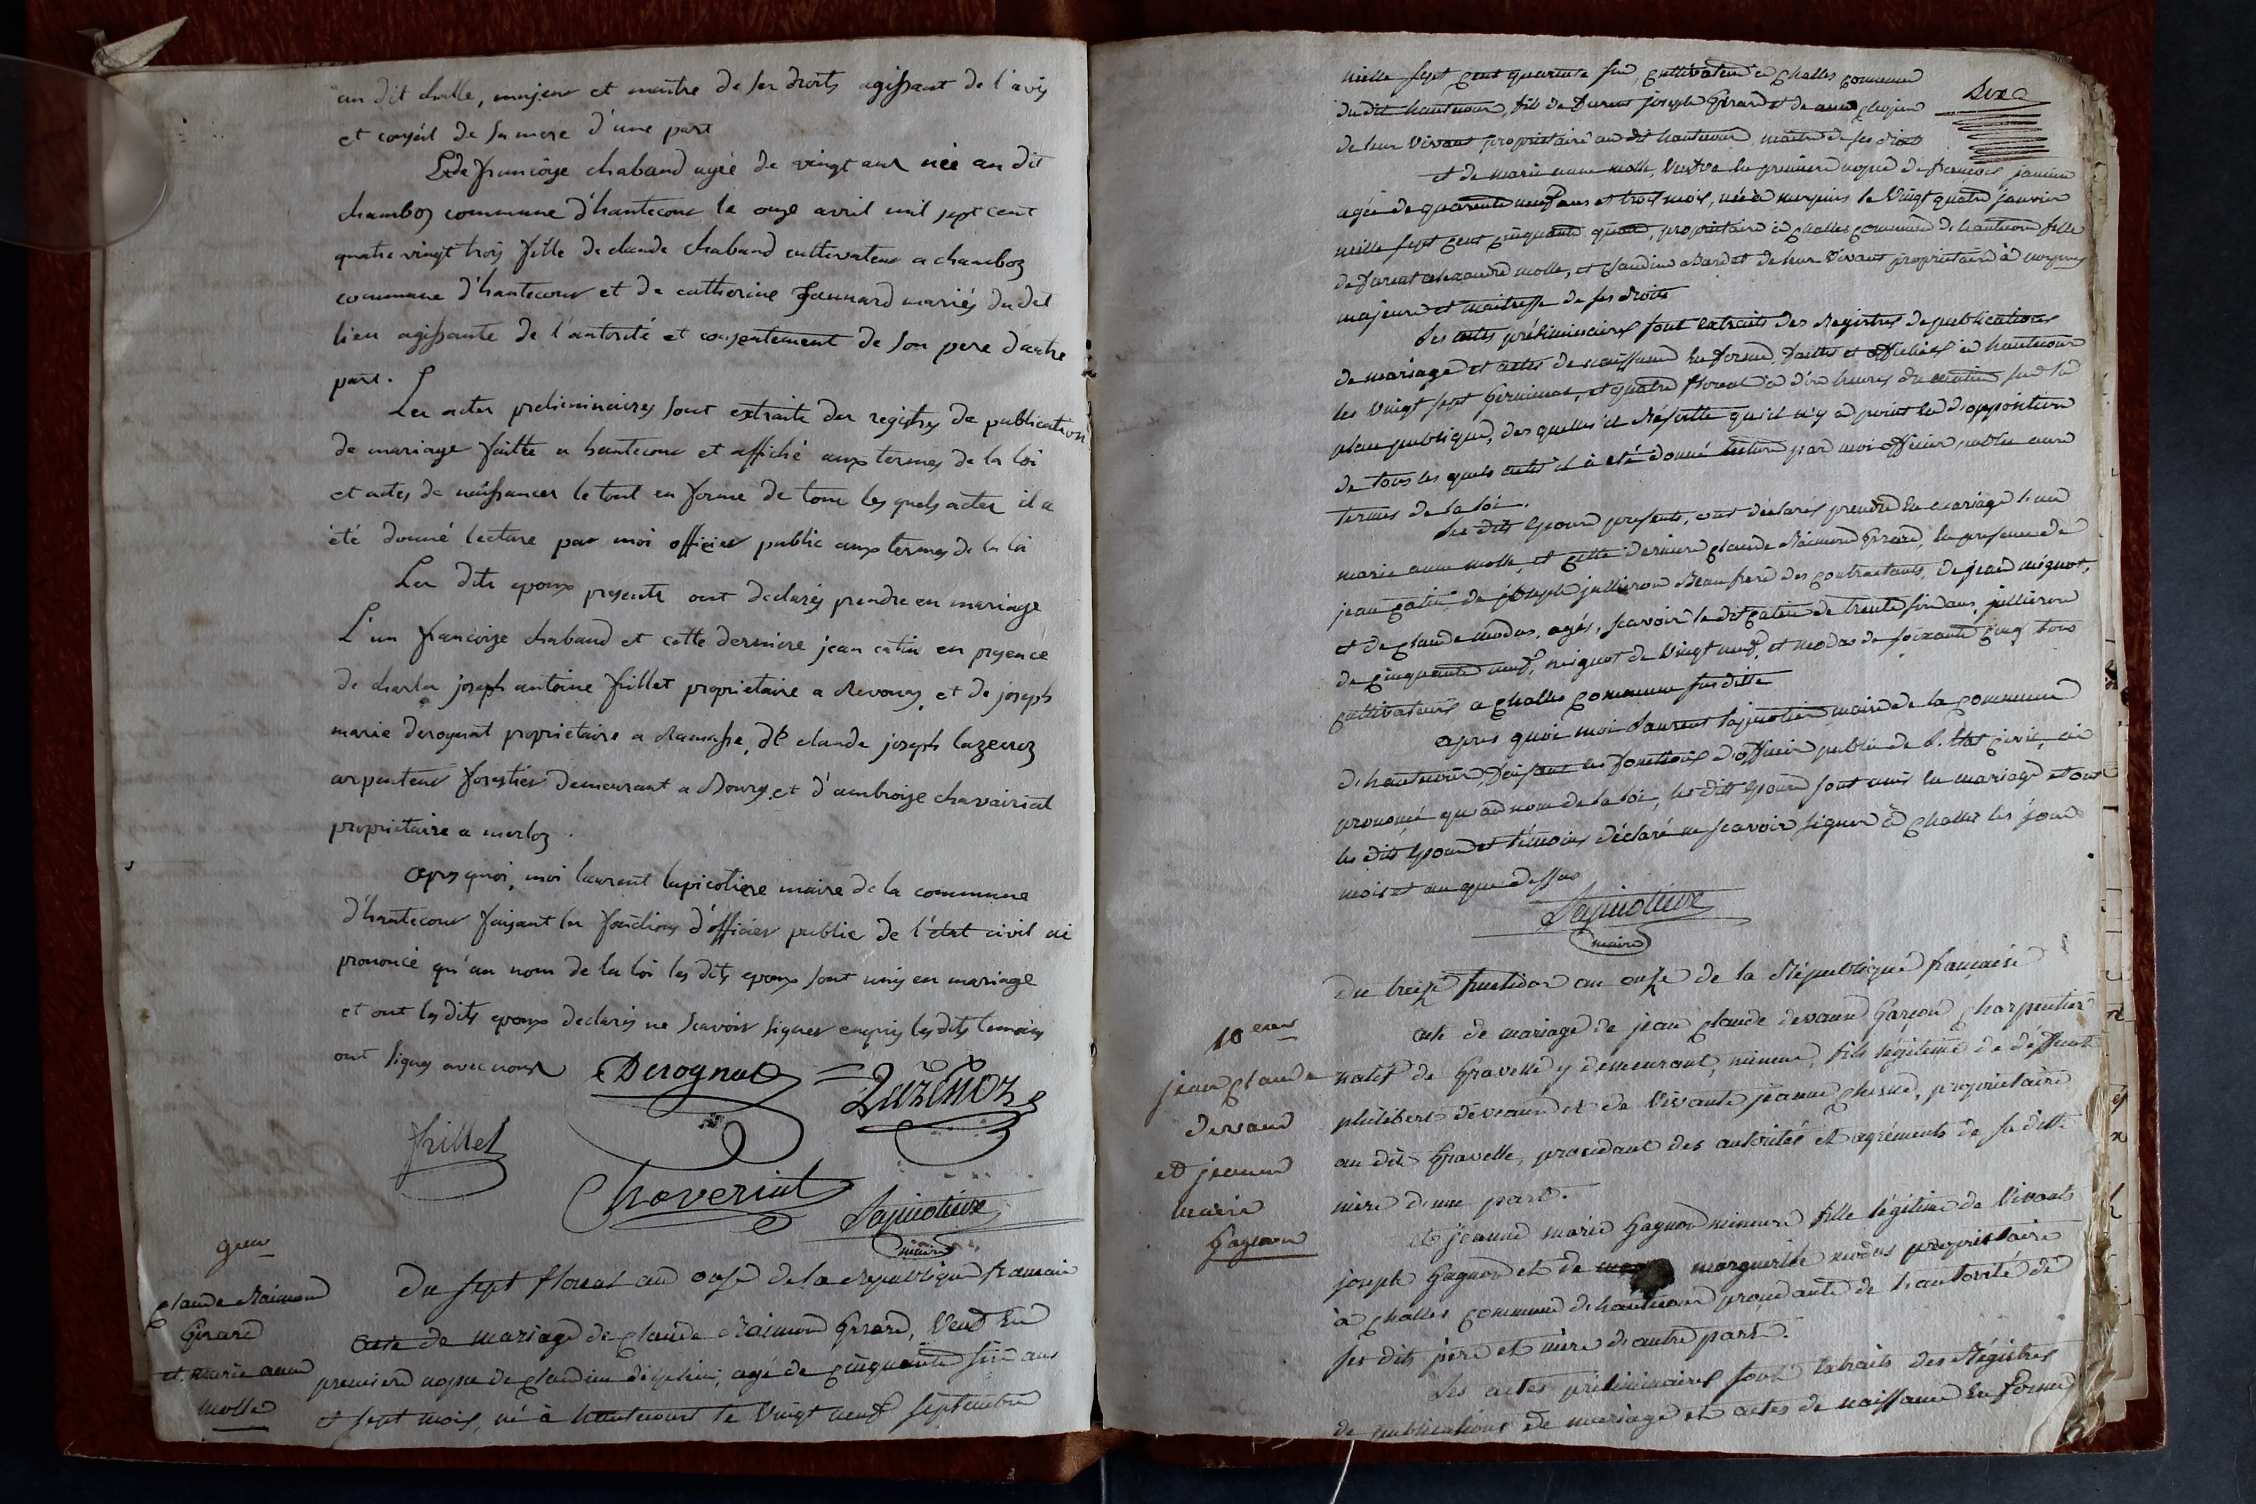 au dit challe, majeur et maitre de ses droits agissant de l'avis
et conseil de sa mere d'une part
Et de francoise chaband agée de vingt ans née au dit
chamboz commune d'hautecour le onze avril mil sept cent
quatre vingt trois fille de claude chaband cultivateur a chamboz
commune d'hautecour et de catherine Jannard mariés du dit
lieu agissante de l'autorité et consentement de son pere d'autre
part.
Les actes preliminaires sont extraits des registres de publication
de mariage faitte a hautecour et affiché aux termes de la loi
et actes de naissances le tout en forme de tous les quels actes il a
été donné lecture par moi officier public aux termes de la loi
Les dits epoux presents ont declarés prendre en mariage
L'un francoise chaband et cette derniere jean catin en presence
de charles joseph antoine frillet proprietaire a Revonas, et de joseph
marie derognat proprietaire a Ramasse, de claude joseph lazenoz
arpenteur forestier demeurant a Bourg, et d'ambroise chavairiat
proprietaire a merloz.
Apres quoi, moi laurent lapicotiere maire de la commune
d'hautecour faisant les fonctions d'officier public de l'état civil ai
prononcé qu'au nom de la loi les dits epoux sont unis en mariage
et ont les dits epoux declarés ne scavoir signer enquis les dits temoins
ont signés avec nous
Derognat
Lazenoz
frillet
Chaveriat
Lapicotiere
maire
9eme
claude Raimond
Girard
et marie anne
molle
Du sept floreal an onze de la Republique francaise
Acte de mariage de claude Raimond Girard, veuf en
premiere nopce de claudine delphin, agé de cinquante six ans
et sept mois, né à hautecourt le vingt neuf septembre
Dix
mille sept cent quarante six, cultivateur à challes commune
du dit hautecour, fils de furent joseph Girard et de anne
de leur vivant proprietaire au dit hautecour, maitre de ses droits
et de marie anne molle, veuve en premiere nopce de françois janin
agée de quarante neuf ans et trois mois, née à nurpius le vingt quatre janvier
mille sept cent cinquante quatre, proprietaire à challes commune de hautecour fille
de furent alexandre molle, et claudine Bardet de leur vivant proprietaire à
majeure et maitresse de ses droits
Les actes préliminaires sont extraits des Registres de publications
de mariage et actes de naissance en forme, faittes et affichées à hautecour
les vingt sept germinal, et quatre floreal à dix heures du matin sur la
place publique, des quelles il résulte qu'il n'y a point eu d'opposition
de tous les quels actes il a été donné lecture par moi officier public aux
termes de la loi.
Les dits Epoux presents, ont déclarés prendre en mariage l'un
marie anne molle, et cette derniere claude Raimond Girard, en presence de
jean catin, de joseph jullieron Beaufrere des contractants, de jean mignot,
et de claude modas, agés, scavoir le dit catin de trente six ans, jullieron
de cinquante neuf, mignot de vingt neuf, et modas de soixante cinq tous
cultivateurs a challes commune susditte
après quoi moi Laurent Lapicotiere maire de la commune
de hautecour, faisant les fonctions d'officier public de l'Etat civil, ai
prononcé qu'au nom de la loi, les dits Epoux sont unis en mariage et ont
les dits Epoux et témoins déclaré ne scavoir signer à challes les jour
mois et an que dessus
Lapicotiere
maire
10eme
jean claude
devaux
et jeanne
marie
Gagnon
Du treize fructidor an onze de la République française
acte de mariage de jean claude devaux Garçon charpentier
natif de Gravelle y demeurant, mineur, fils légitime de déffunt
philibert devaux et de vivante jeanne chesne, proprietaire
au dit Gravelle, procedant des autorités et agréments de sa ditte
mère d'une part.
et jeanne marie Gagnon mineure fille légitime de vivants
joseph Gagnon et de marguerite modas proprietaire
à challes commune de hautecour procedante de l'autorité de
ses dits père et mère d'autre part.
Les actes préliminaires sont extraits des Régistres
de publications de mariage et actes de naissance en forme